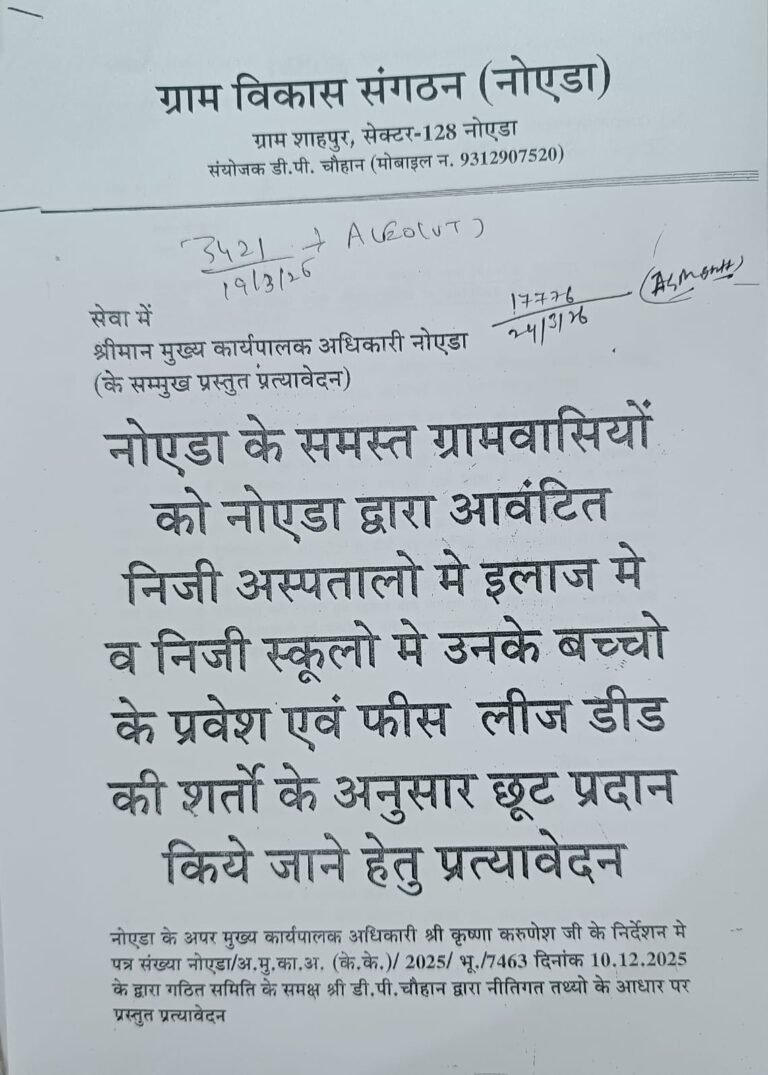 ग्राम विकास संगठन (नोएडा)
ग्राम शाहपुर, सेक्टर-128 नोएडा
संयोजक डी.पी. चौहान (मोबाइल न. 9312907520)
3421 → ACEO(VT)
19/3/26
17776
24/3/26
सेवा में
श्रीमान मुख्य कार्यपालक अधिकारी नोएडा
(के सम्मुख प्रस्तुत प्रत्यावेदन)
नोएडा के समस्त ग्रामवासियों
को नोएडा द्वारा आवंटित
निजी अस्पतालो मे इलाज मे
व निजी स्कूलो मे उनके बच्चो
के प्रवेश एवं फीस लीज डीड
की शर्तो के अनुसार छूट प्रदान
किये जाने हेतु प्रत्यावेदन
नोएडा के अपर मुख्य कार्यपालक अधिकारी श्री कृष्णा करुणेश जी के निर्देशन मे
पत्र संख्या नोएडा/अ.मु.का.अ. (के.के.)/ 2025/ भू./7463 दिनांक 10.12.2025
के द्वारा गठित समिति के समक्ष श्री डी.पी.चौहान द्वारा नीतिगत तथ्यो के आधार पर
प्रस्तुत प्रत्यावेदन